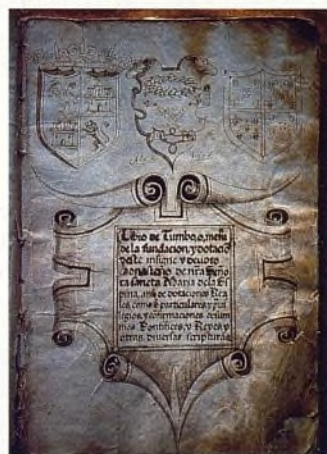 Libro de Tumbo, o, meña
de la fundacion, y dotació
deste insigne y devoto
monasterio de nra Seño
ra sancta Maria dela Es
pina, ansi de dotaciones Rea
les, como de particulares, y pui
legios, y confirmaciones de sum
mos Pontifices, y Reyes, y
otras diversas scripturas